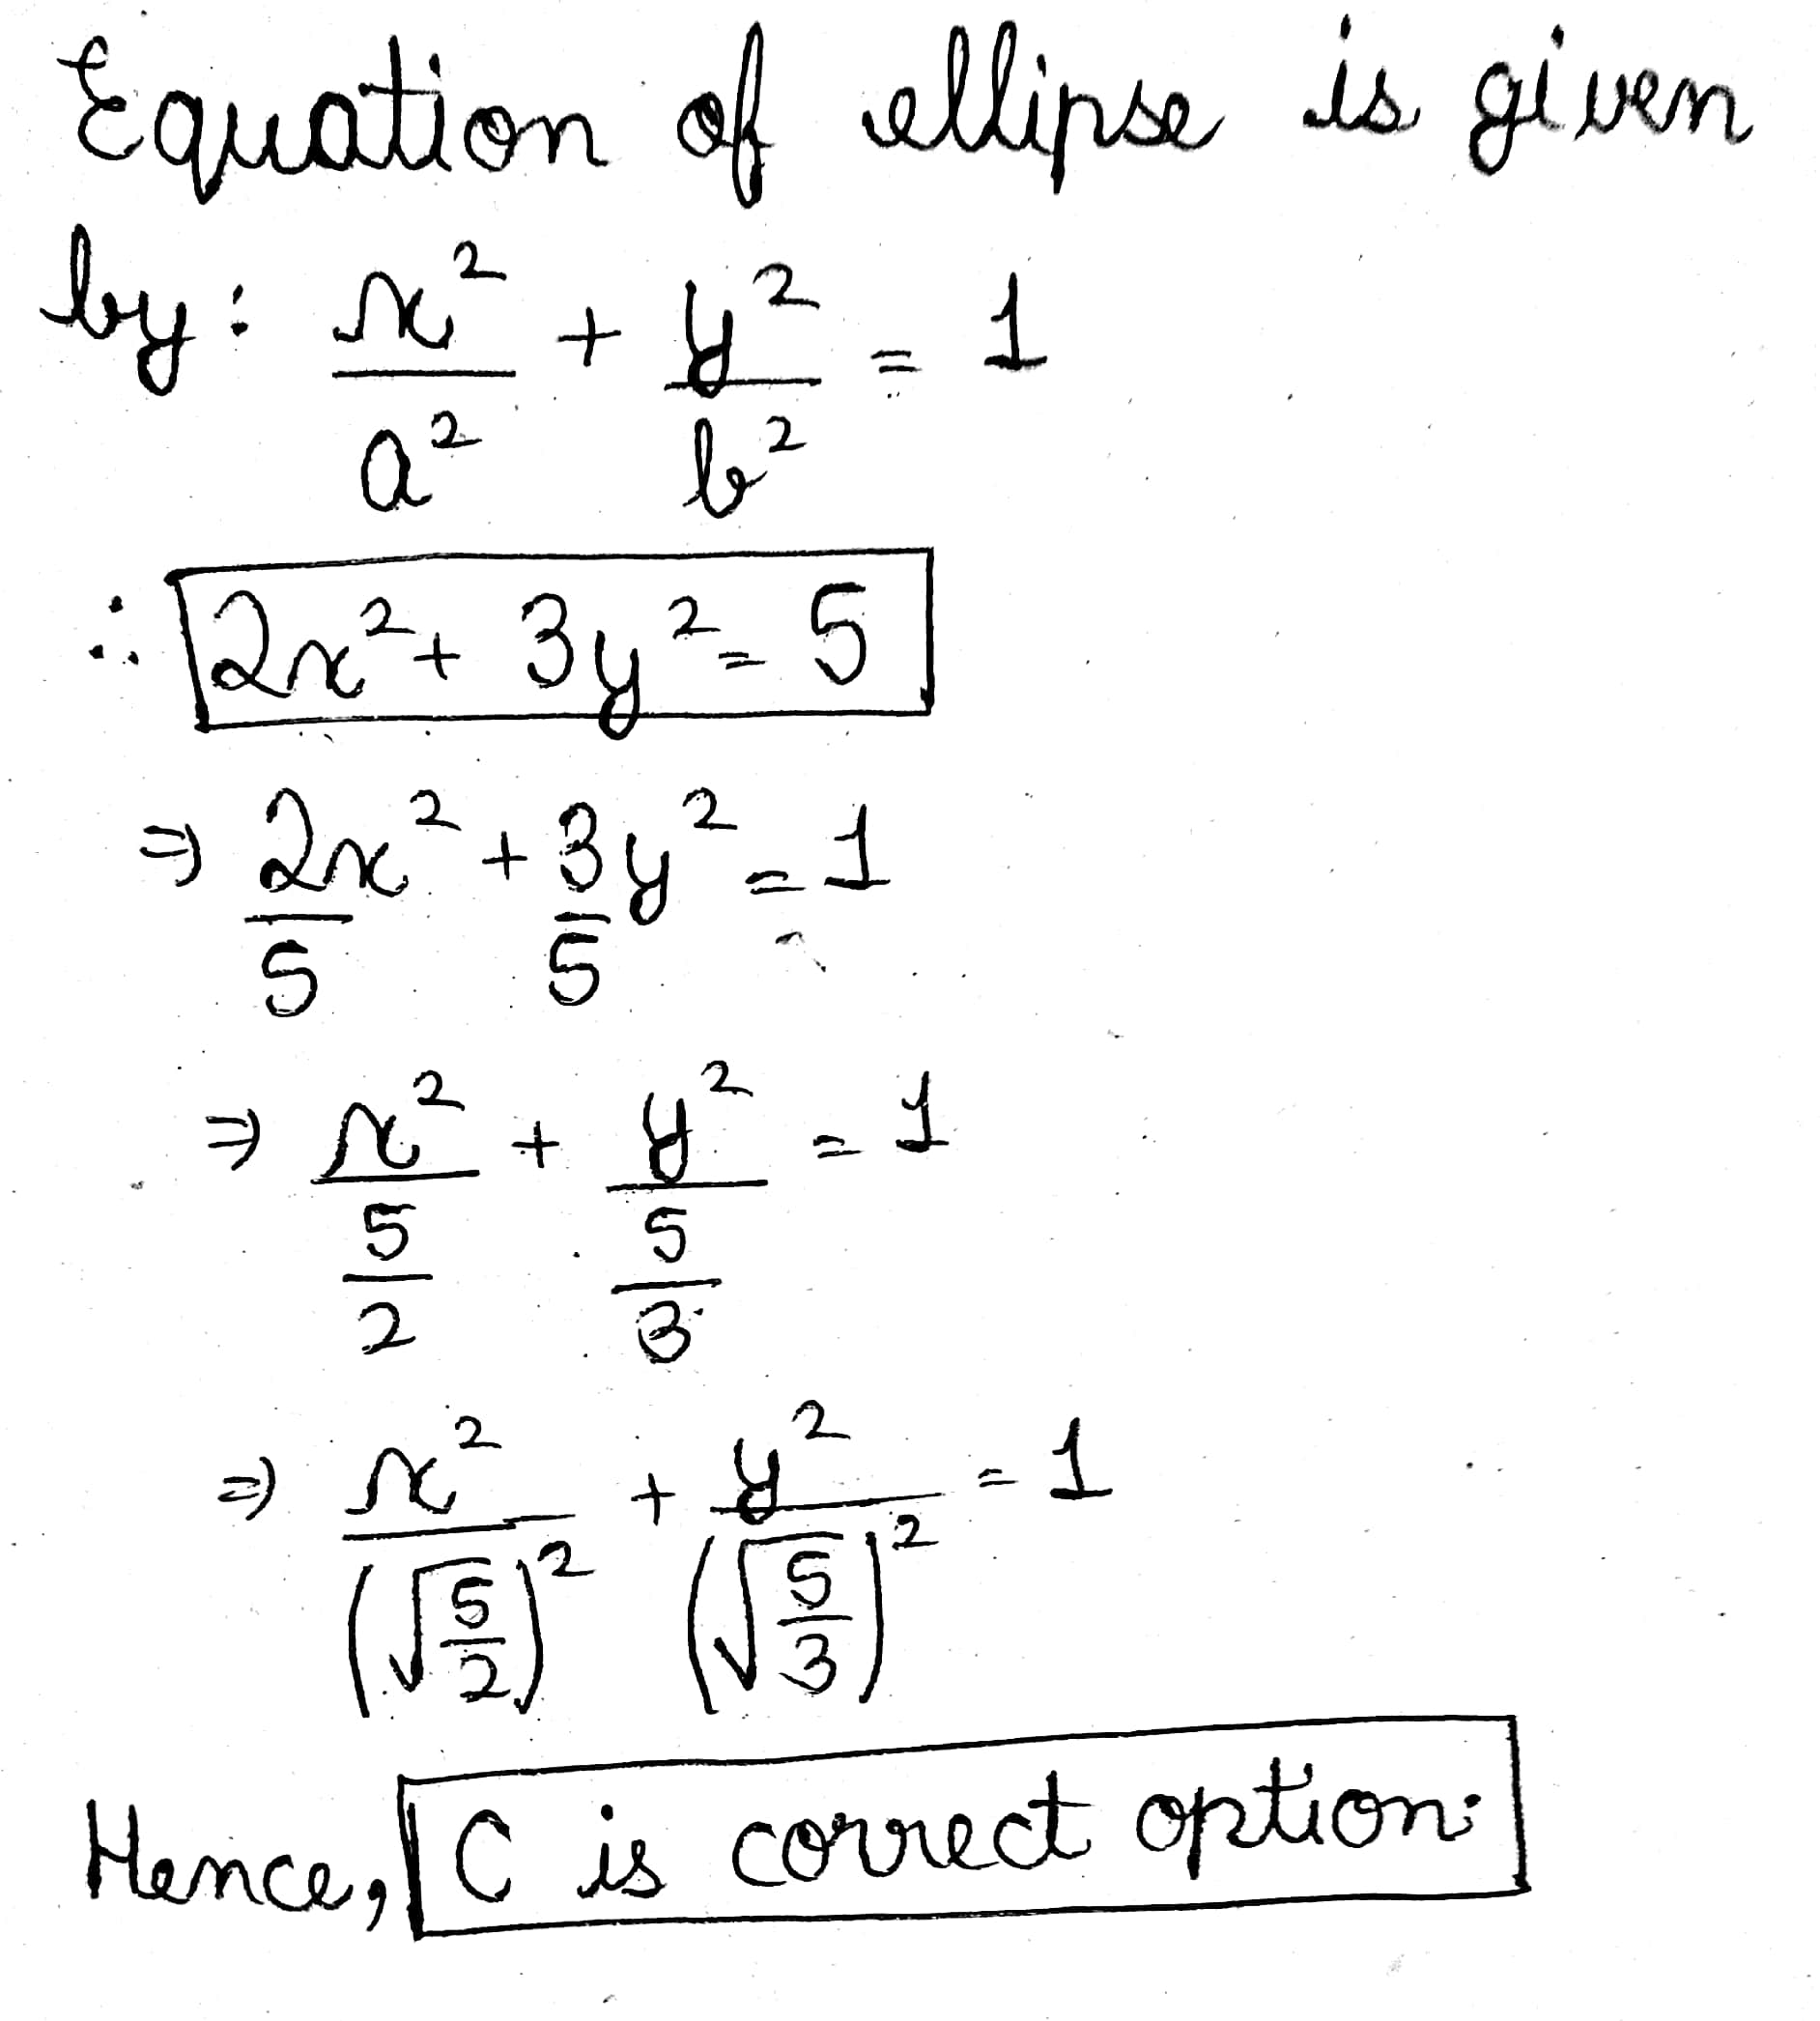 Equation of ellipse is given
by: x²/a² + y²/b² = 1
∴ 2x² + 3y² = 5
⇒ 2/5 x² + 3/5 y² = 1
⇒ x²/(5/2) + y²/(5/3) = 1
⇒ x²/(√(5/2))² + y²/(√(5/3))² = 1
Hence, C is correct option.